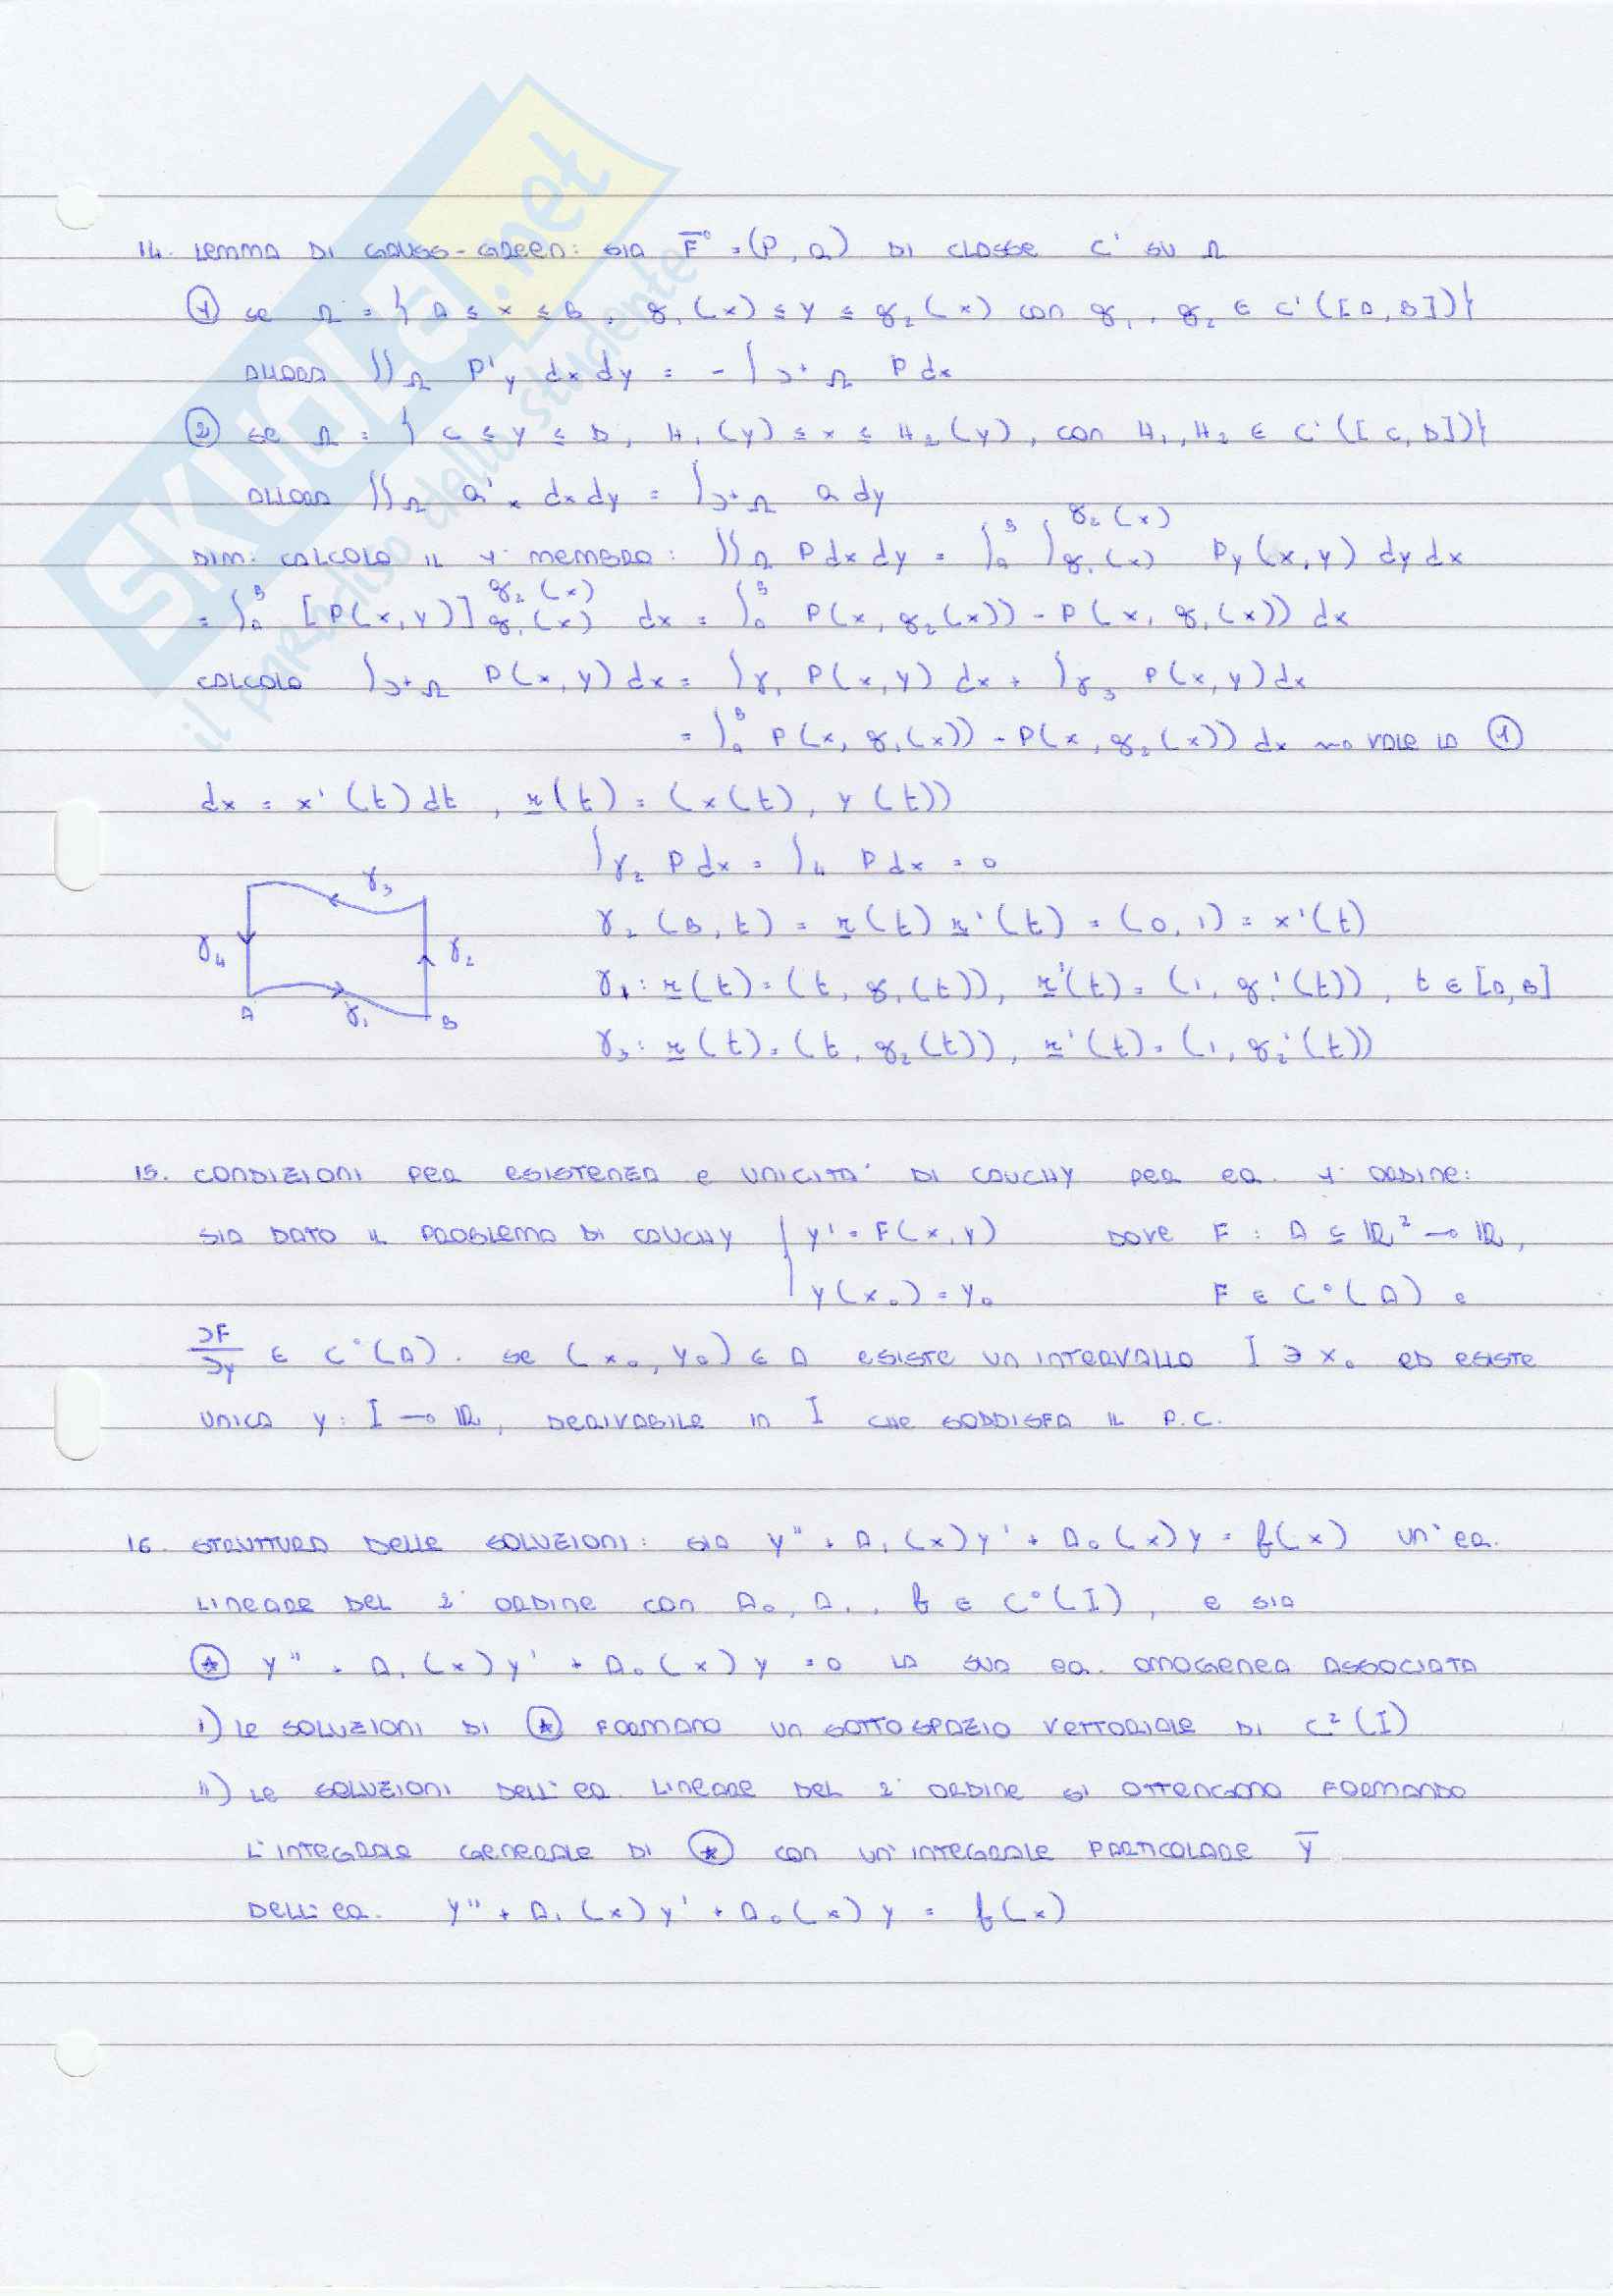 SKUOLA.net
il paradiso dello studente
14. LEMMA DI GAUSS-GREEN: SIA F̄ = (P, Q) DI CLASSE C' SU Ω
① SE Ω = { A ≤ x ≤ B, g₁(x) ≤ y ≤ g₂(x) CON g₁, g₂ ∈ C'([A, B])}
ALLORA ∫∫Ω P'y dx dy = - ∫∂⁺Ω P dx
② SE Ω = { C ≤ y ≤ D, H₁(y) ≤ x ≤ H₂(y), CON H₁, H₂ ∈ C'([C, D])}
ALLORA ∫∫Ω Q'x dx dy = ∫∂⁺Ω Q dy
DIM: CALCOLO IL 1° MEMBRO: ∫∫Ω P dx dy = ∫ₐᴮ ∫g₁(x)^g₂(x) Py(x, y) dy dx
= ∫ₐᴮ [P(x, y)]g₁(x)^g₂(x) dx = ∫ₐᴮ P(x, g₂(x)) - P(x, g₁(x)) dx
CALCOLO ∫∂⁺Ω P(x, y) dx = ∫γ₁ P(x, y) dx + ∫γ₃ P(x, y) dx
= ∫ₐᴮ P(x, g₁(x)) - P(x, g₂(x)) dx ⇝ VALE LA ①
dx = x'(t) dt, r(t) = (x(t), y(t))
∫γ₂ P dx = ∫₄ P dx = 0
γ₂ (B, t) = r(t) r'(t) = (0, 1) = x'(t)
γ₁: r(t) = (t, g₁(t)), r'(t) = (1, g₁'(t)), t ∈ [A, B]
γ₃: r(t) = (t, g₂(t)), r'(t) = (1, g₂'(t))
γ₃
γ₄
γ₂
A
γ₁
B
15. CONDIZIONI PER ESISTENZA E UNICITA' DI CAUCHY PER EQ. 1° ORDINE:
SIA DATO IL PROBLEMA DI CAUCHY { y' = F(x, y) DOVE F : A ⊆ ℝ² → ℝ,
y(x₀) = y₀ F ∈ C°(A) E
∂F/∂y ∈ C°(A). SE (x₀, y₀) ∈ A ESISTE UN INTERVALLO I ∋ x₀ ED ESISTE
UNICA y: I → ℝ, DERIVABILE IN I CHE SODDISFA IL P.C.
16. STRUTTURA DELLE SOLUZIONI: SIA y'' + A₁(x)y' + A₀(x)y = f(x) UN'EQ.
LINEARE DEL 2° ORDINE CON A₀, A₁, f ∈ C°(I), E SIA
⊛ y'' + A₁(x)y' + A₀(x)y = 0 LA SUA EQ. OMOGENEA ASSOCIATA
i) LE SOLUZIONI DI ⊛ FORMANO UN SOTTOSPAZIO VETTORIALE DI C²(I)
ii) LE SOLUZIONI DELL'EQ. LINEARE DEL 2° ORDINE SI OTTENGONO FORMANDO
L'INTEGRALE GENERALE DI ⊛ CON UN'INTEGRALE PARTICOLARE ȳ
DELL'EQ. y'' + A₁(x)y' + A₀(x)y = f(x)